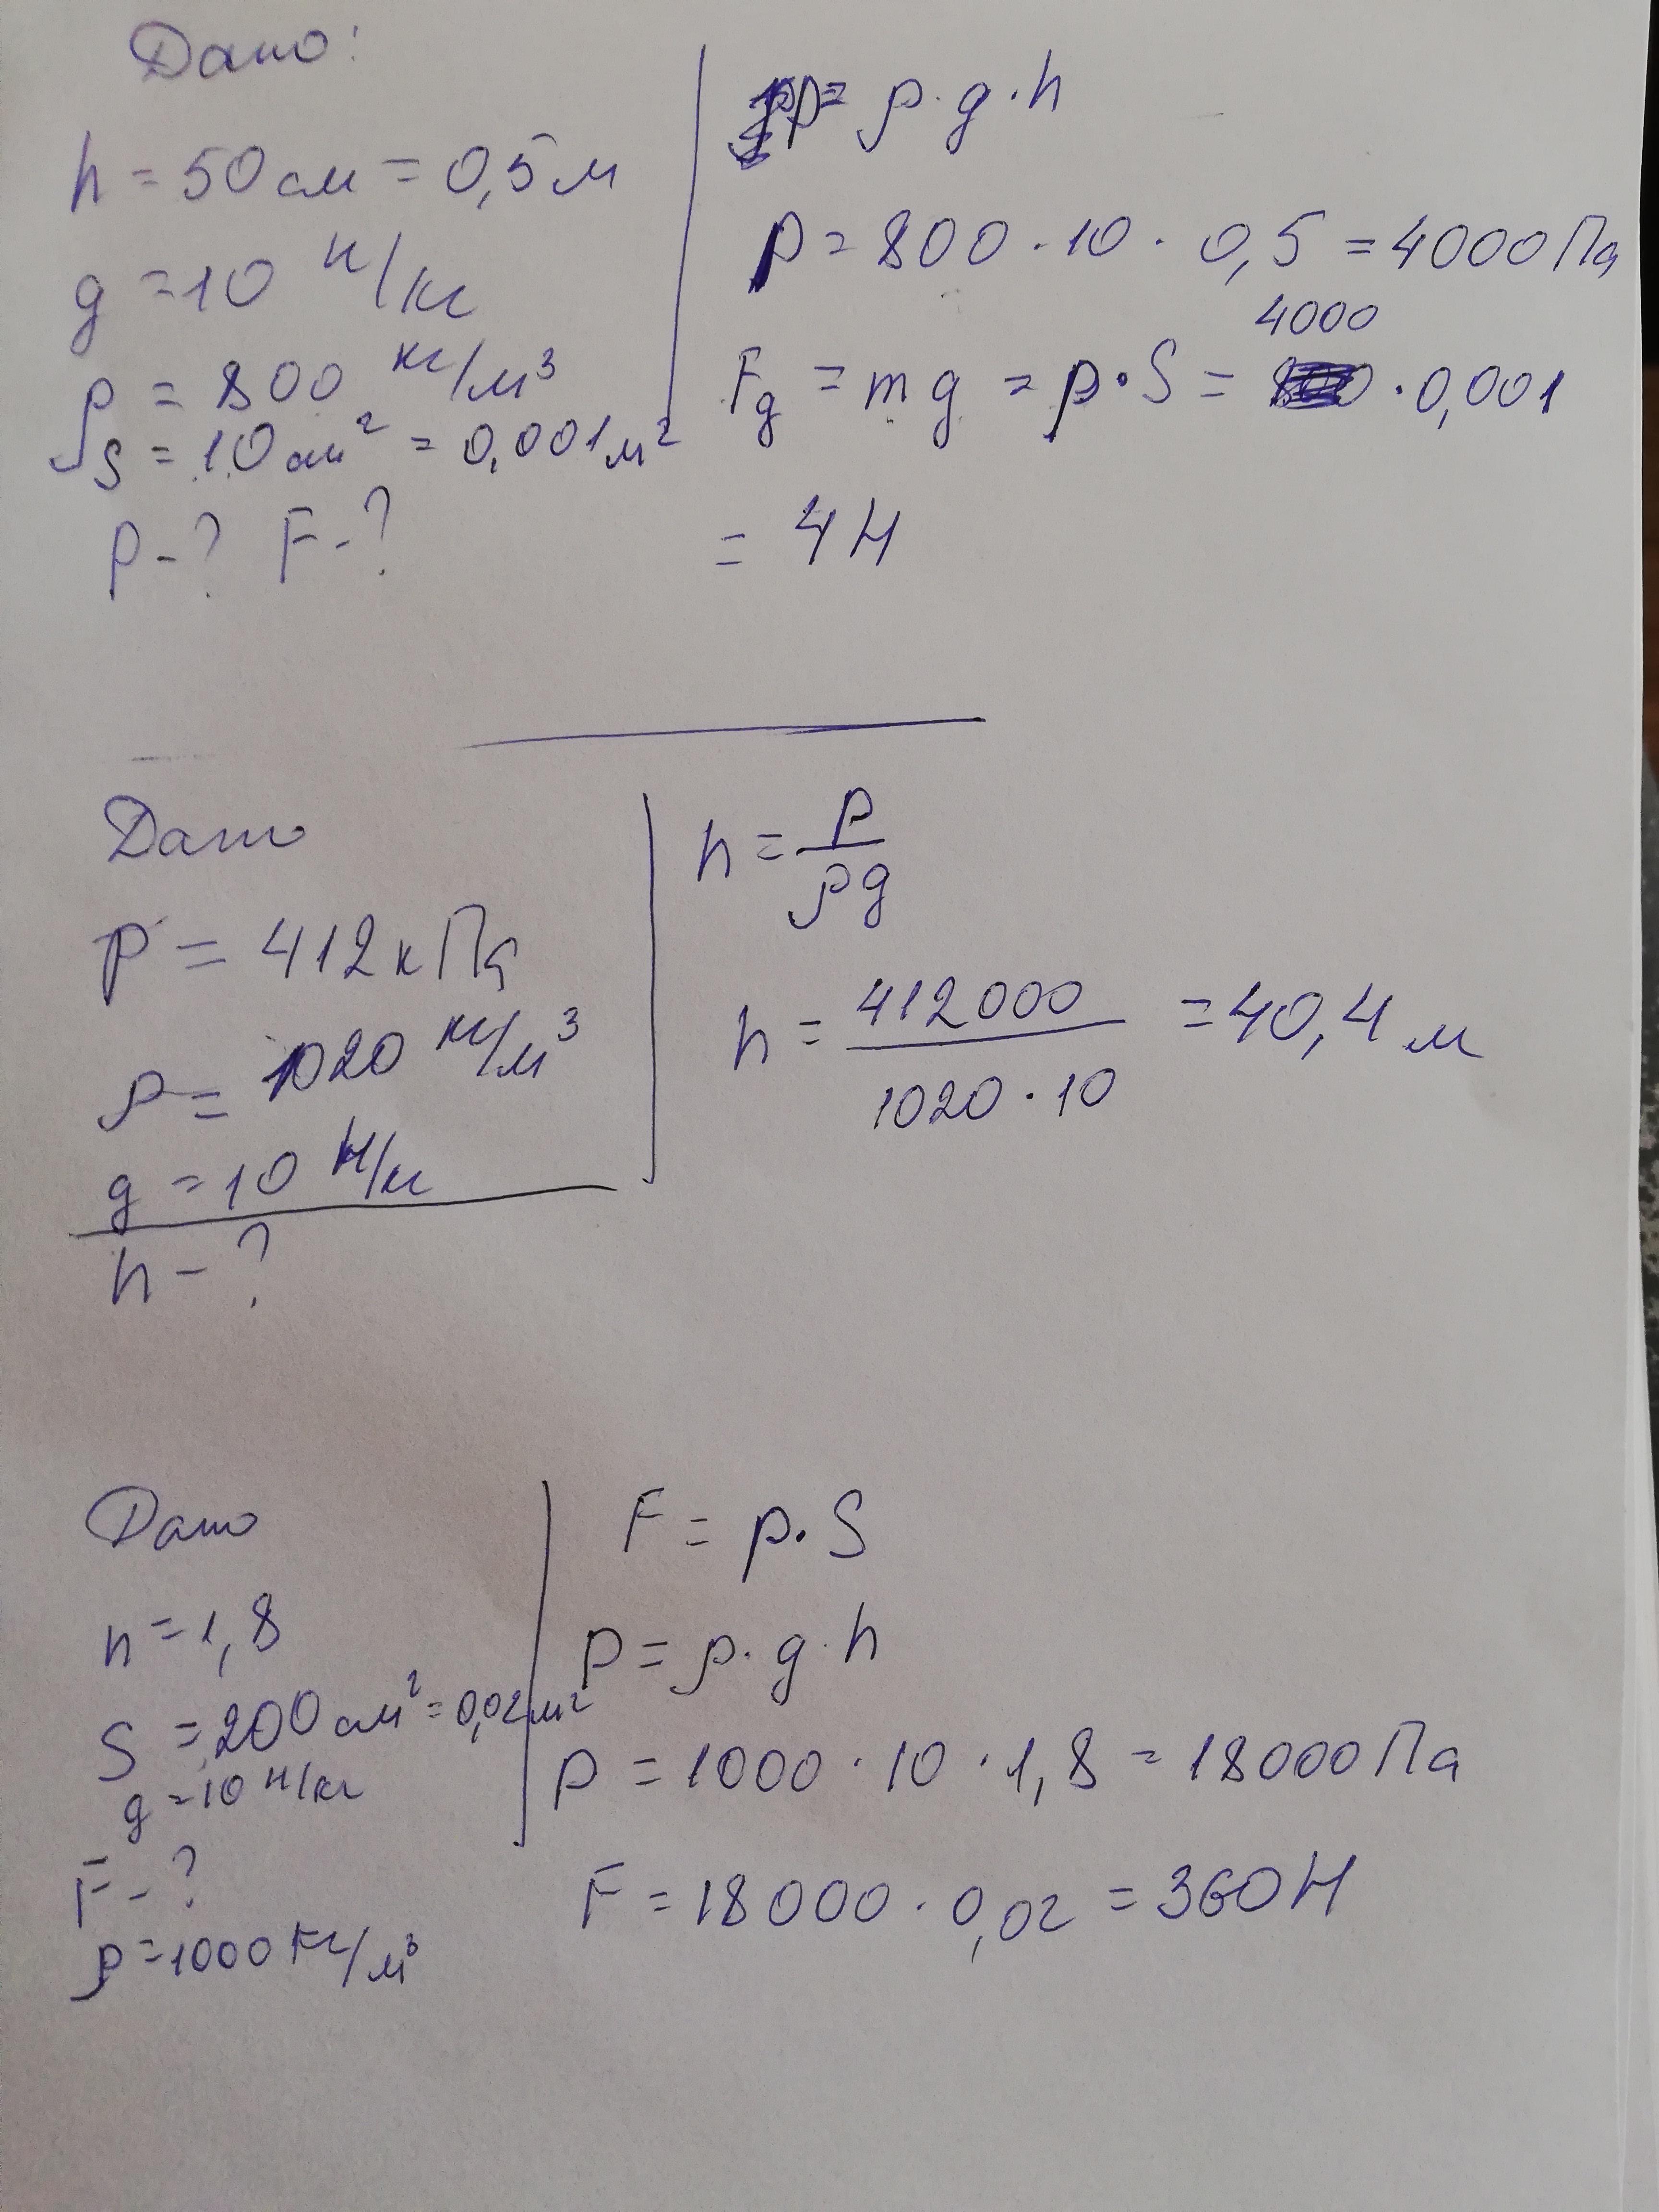 Дано:
h = 50 см = 0,5 м
g = 10 Н/кг
ρ = 800 кг/м³
S = 10 см² = 0,001 м²
p - ? F - ?
p = ρ · g · h
p = 800 · 10 · 0,5 = 4000 Па
4000
Fg = mg = p · S = · 0,001
= 4 Н
Дано
p = 412 кПа
ρ = 1020 кг/м³
g = 10 Н/кг
h - ?
h = p / ρg
h = 412000 / 1020 · 10 = 40,4 м
Дано
h = 1,8
S = 200 см² = 0,02 м²
g = 10 Н/кг
F - ?
ρ = 1000 кг/м³
F = p · S
p = ρ · g · h
p = 1000 · 10 · 1,8 = 18000 Па
F = 18000 · 0,02 = 360 Н